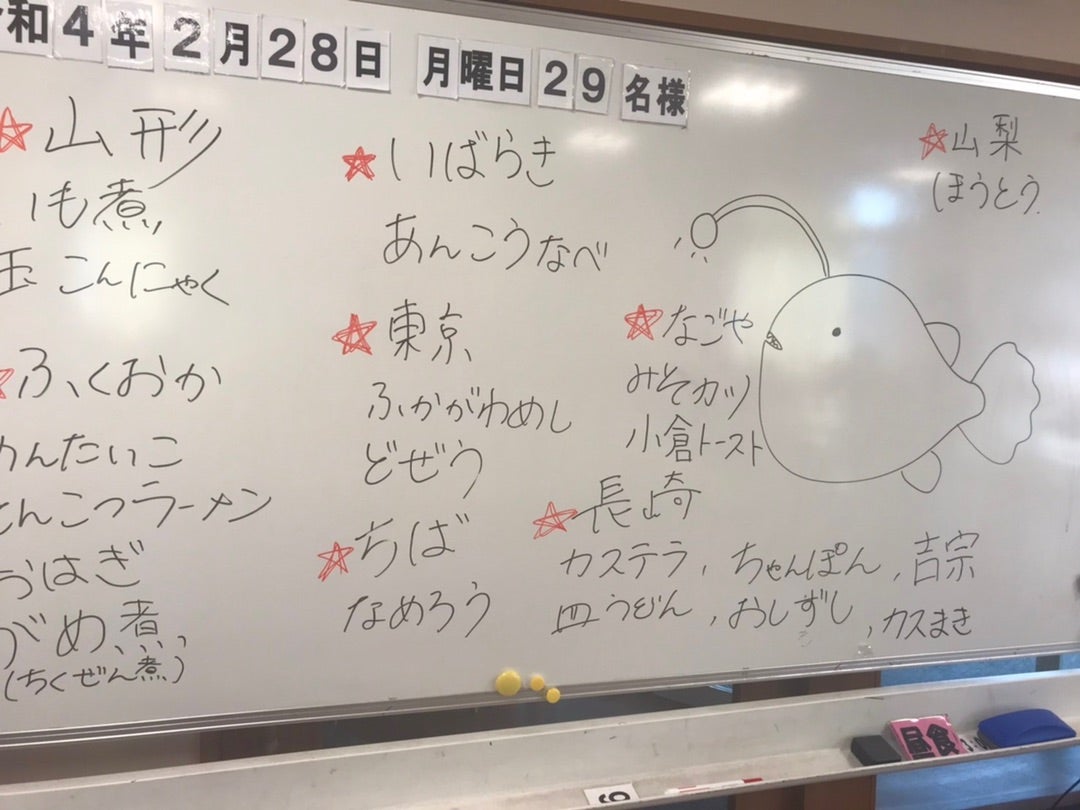 令和4年2月28日 月曜日 29名様
山形
いも煮
玉こんにゃく
ふくおか
めんたいこ
とんこつラーメン
おはぎ
がめ煮
(ちくぜん煮)
いばらき
あんこうなべ
東京
ふかがわめし
どぜう
ちば
なめろう
山梨
ほうとう
なごや
みそカツ
小倉トースト
長崎
カステラ, ちゃんぽん, 吉宗
皿うどん, おしずし, カスまき
昼食
9